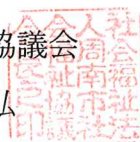 協議会
弘
社会福祉法
人周南市社
会福祉協議
会会長之印